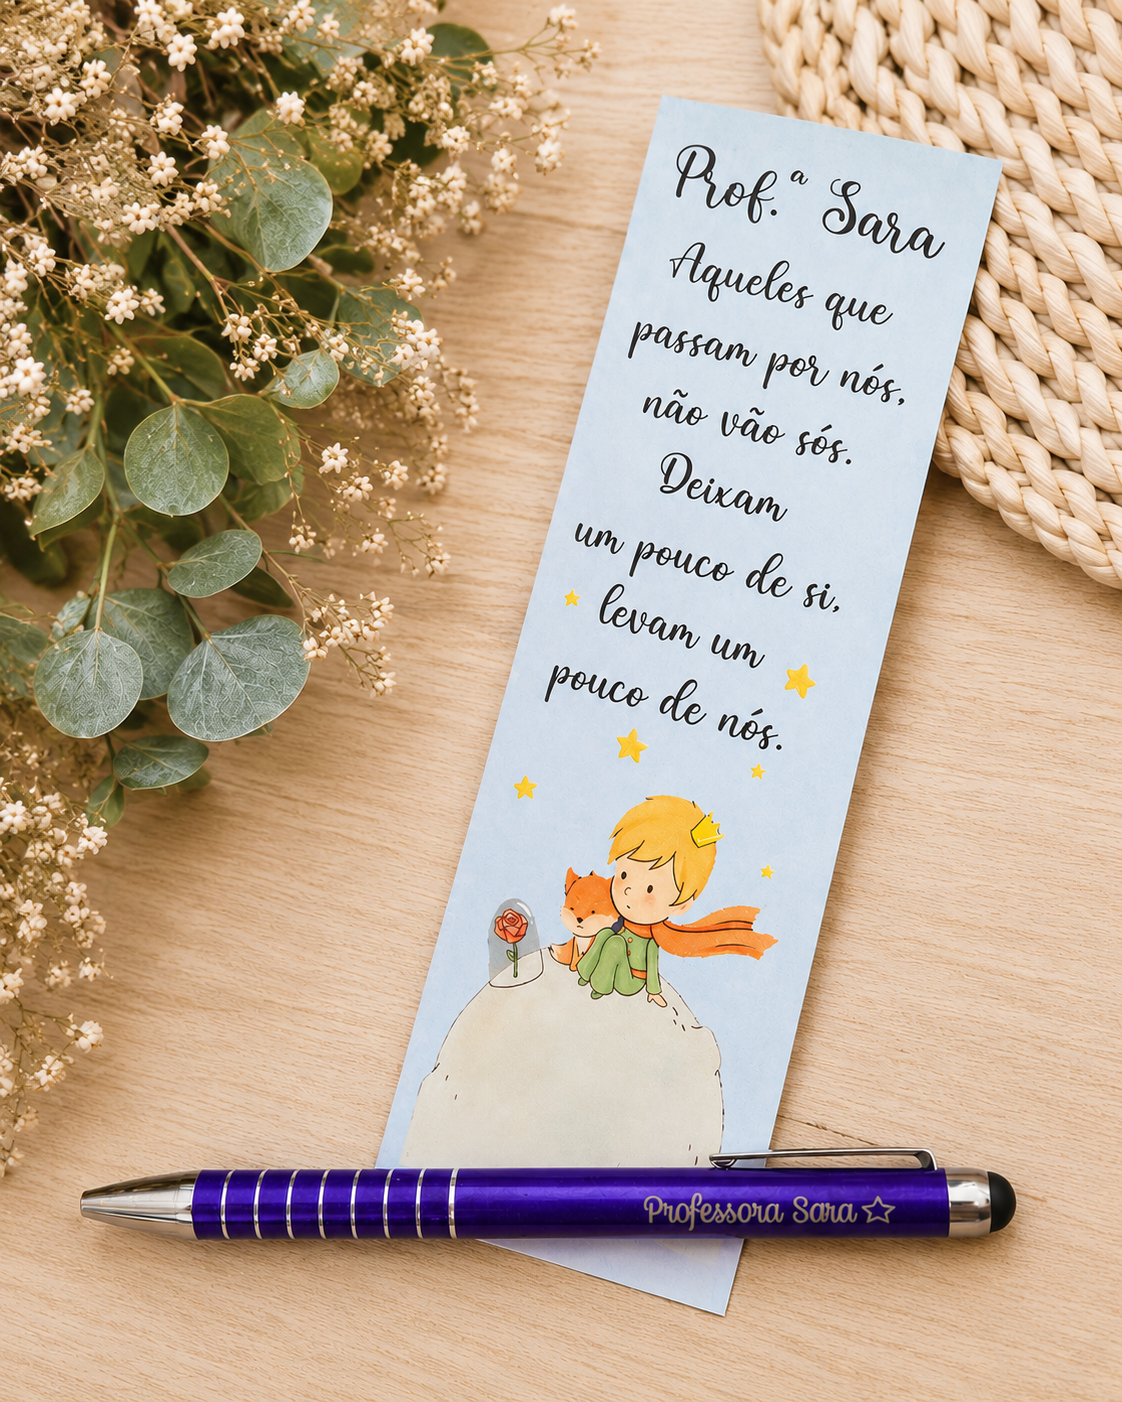 Prof.ª Sara
Aqueles que
passam por nós,
não vão sós.
Deixam
um pouco de si,
levam um
pouco de nós.
Professora Sara